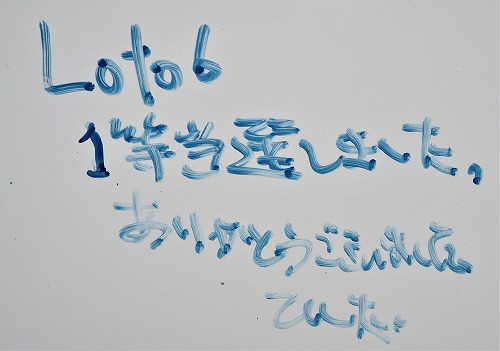 Loto6
1等当選しました,
ありがとうございました